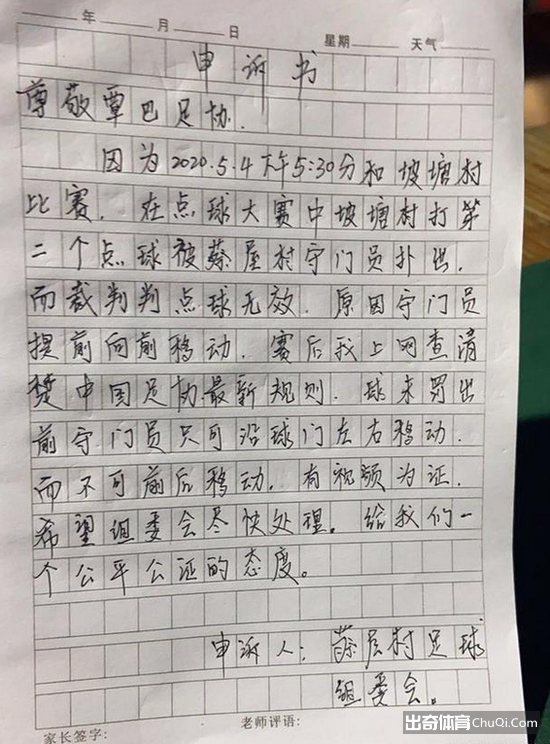 年 月 日 星期 天气
申诉书
尊敬覃巴足协.
因为2020.5.4下午5:30分和坡塘村
比赛. 在点球大赛中坡塘村打第
二个点球被蔡屋村守门员扑出.
而裁判判点球无效. 原因守门员
提前向前移动. 赛后我上网查清
楚中国足协最新规则. 球未罚出
前守门员只可沿球门左右移动.
而不可前后移动. 有视频为证.
希望组委会尽快处理。给我们一
个公平公证的态度。
申诉人: 蔡屋村足球
组委会.
家长签字: 老师评语:
出奇体育ChuQi.Com